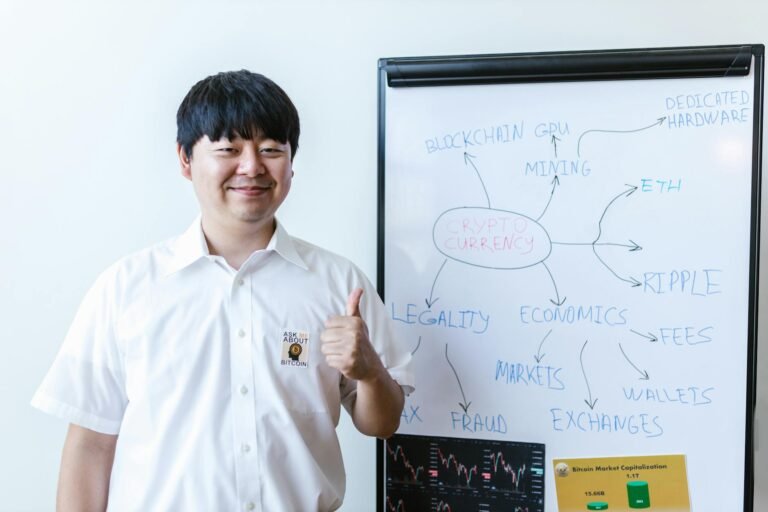 DEDICATED
HARDWARE
BLOCKCHAIN
GPU
MINING
ETH
CRYPTO
CURRENCY
RIPPLE
LEGALITY
ECONOMICS
FEES
MARKETS
WALLETS
FRAUD
EXCHANGES
ASK ME
ABOUT
BITCOIN
Bitcoin Market Capitalization
1.17
15.66B